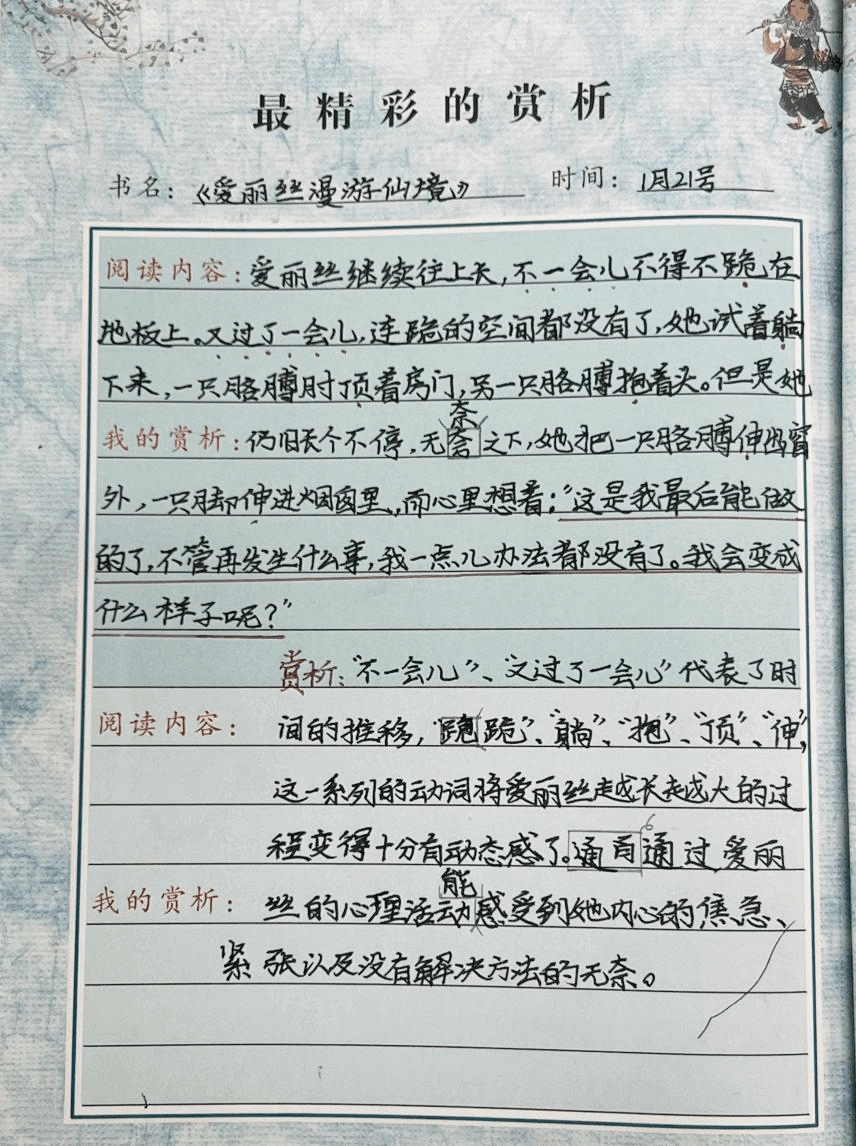 最精彩的赏析
书名：《爱丽丝漫游仙境》 时间：1月21号
阅读内容：爱丽丝继续往上长，不一会儿不得不跪在
地板上。又过了一会儿，连跪的空间都没有了，她试着躺
下来，一只胳膊肘顶着房门，另一只胳膊抱着头。但是她
奈
我的赏析：仍旧长个不停，无之下，她把一只胳膊伸出窗
外，一只脚伸进烟囱里，而心里想着：“这是我最后能做
的了，不管再发生什么事，我一点儿办法都没有了。我会变成
什么样子呢？”
赏析：“不一会儿”、“又过了一会儿”代表了时
阅读内容：间的推移，“跪”、“躺”、“抱”、“顶”、“伸”，
这一系列的动词将爱丽丝越长越大的过
程变得十分有动态感了。通过爱丽
能
我的赏析：丝的心理活动感受到她内心的焦急、
紧张以及没有解决方法的无奈。